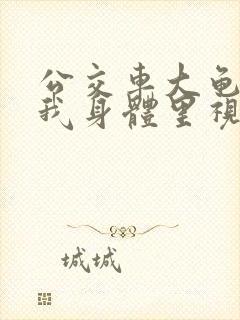 公交車大龟
我身體里視
城城